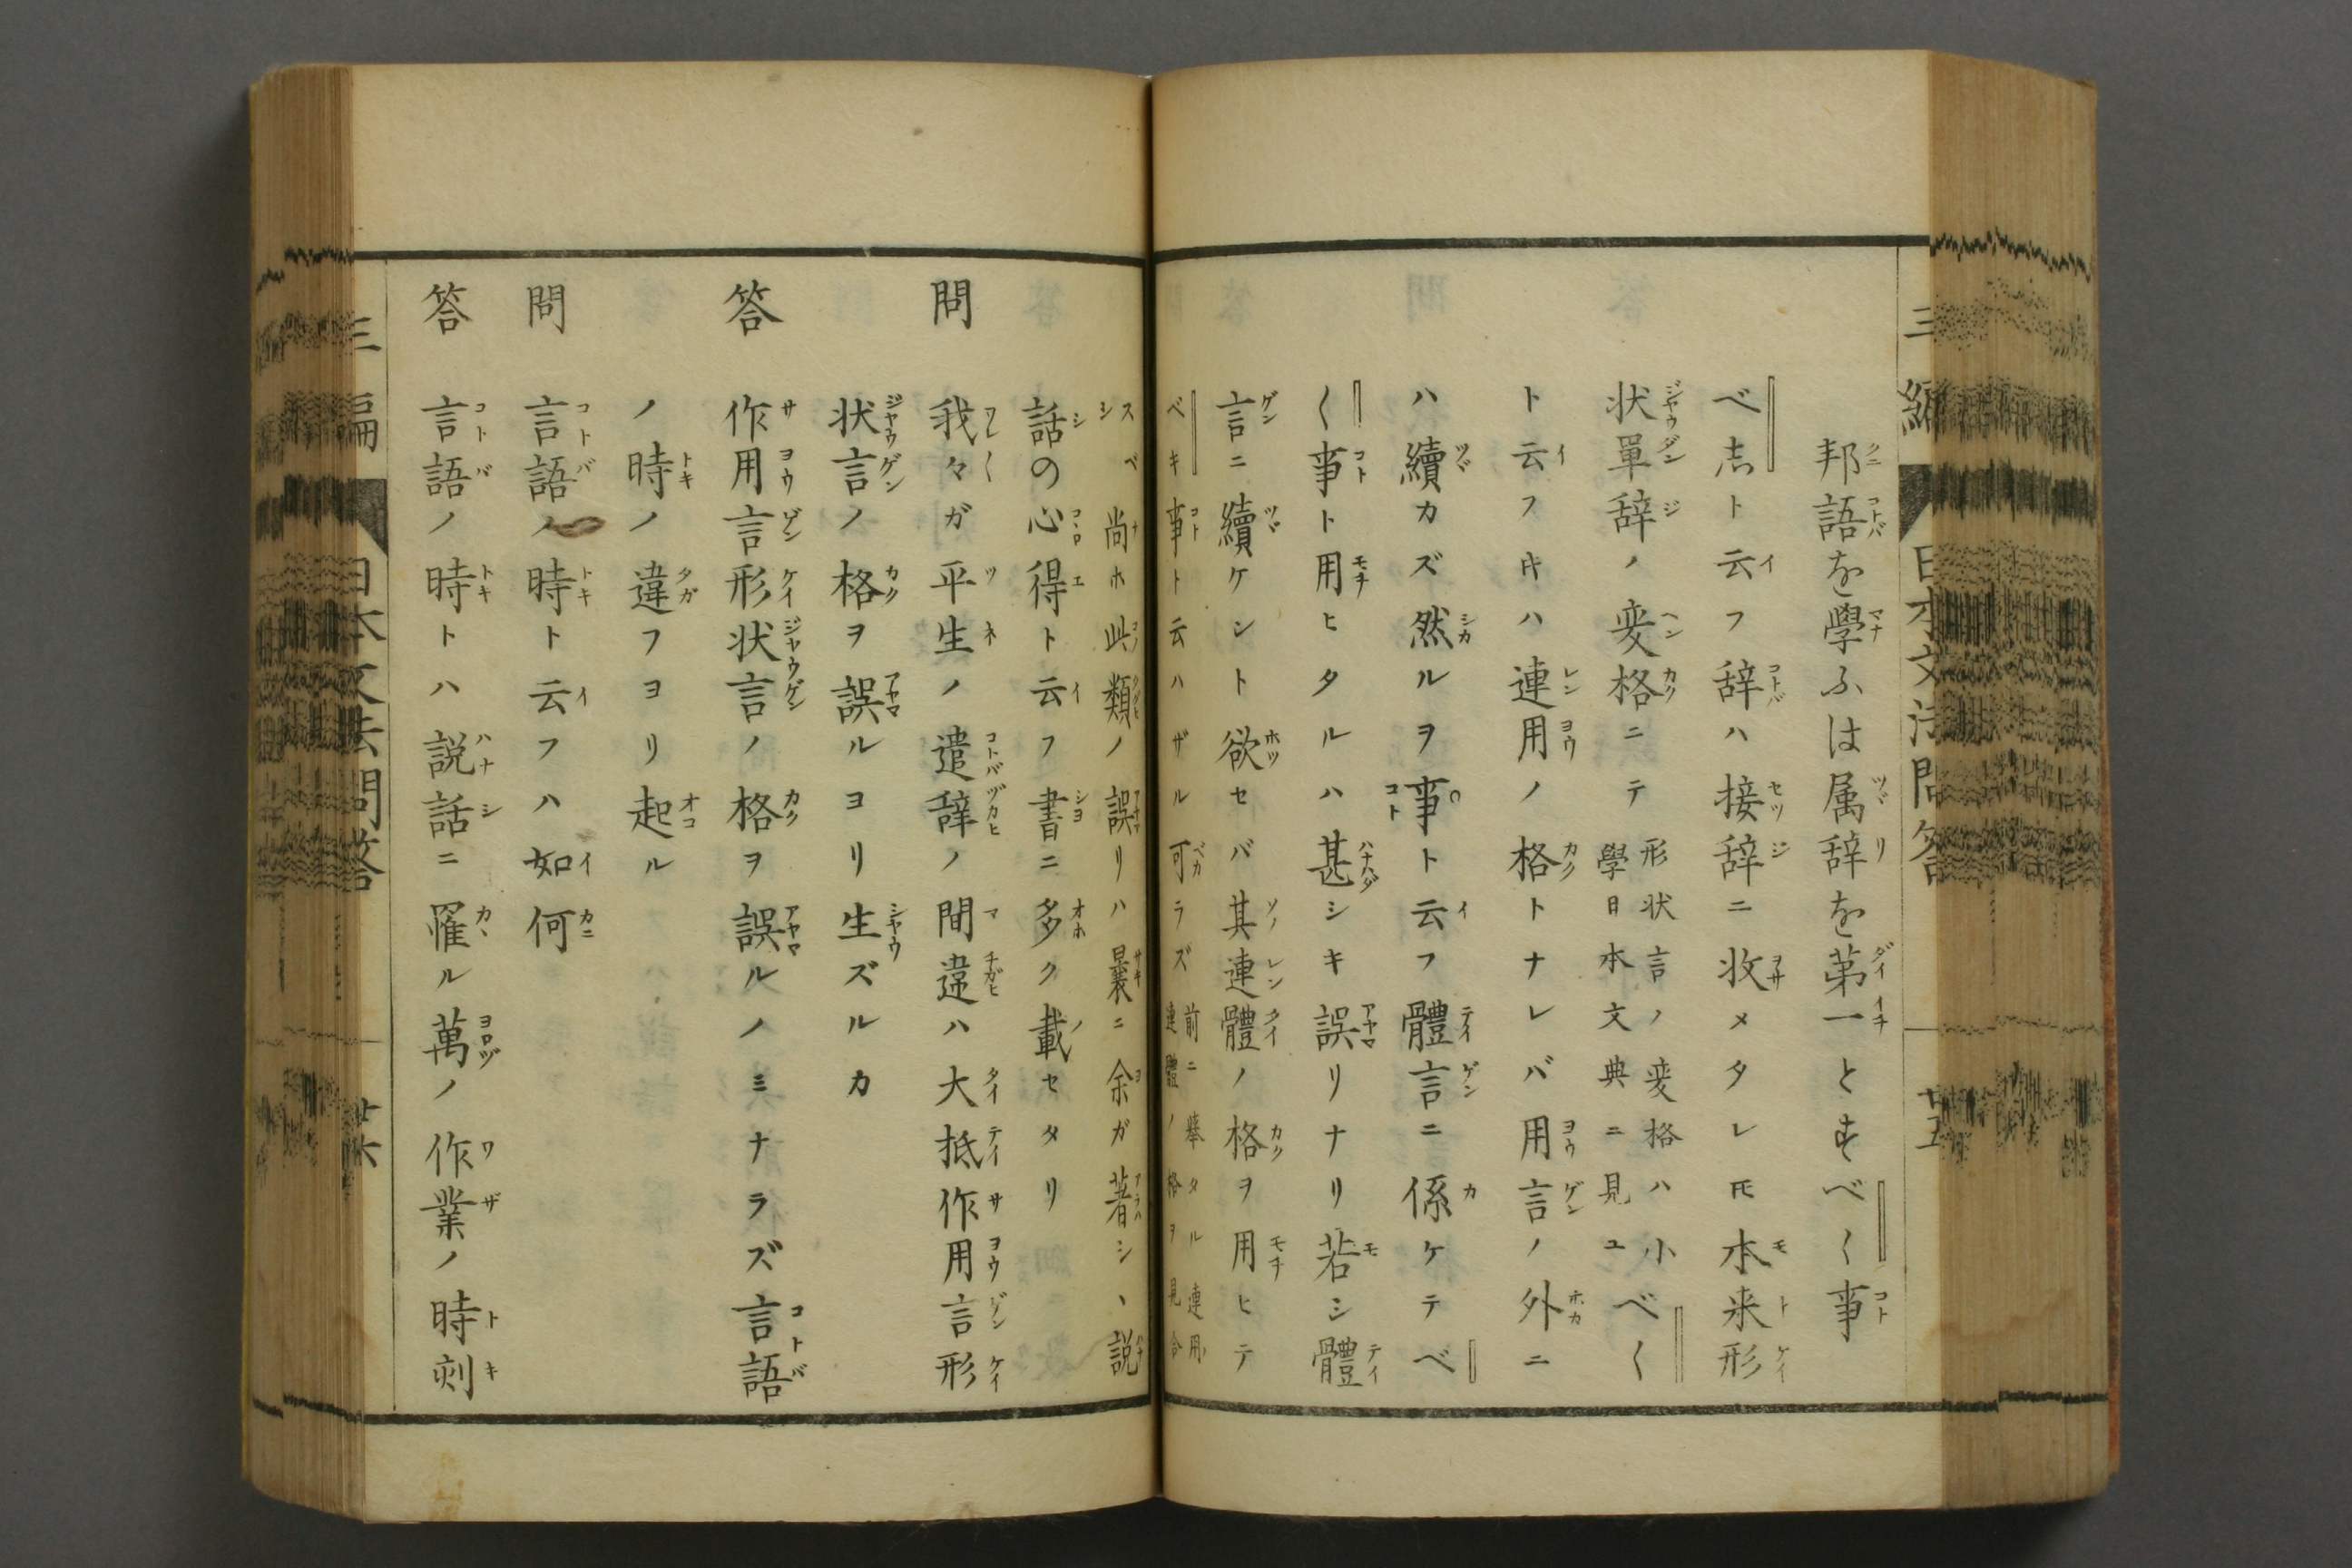 三編 日本文法問答 廿五
邦語を學ふは属辞を第一とすべく事
べ志ト云フ辞ハ接辞ニ收メタレ𪜈本来形
状單辞ノ変格ニテ形状言ノ変格ハ小學日本文典ニ見ユべく
ト云フキハ連用ノ格トナレバ用言ノ外ニ
ハ續カズ然ルヲ事ト云フ體言ニ係ケテべ
く事ト用ヒタルハ甚シキ誤リナリ若シ體
言ニ續ケント欲セバ其連體ノ格ヲ用ヒテ
ベキ事ト云ハザル可ラズ前ニ擧タル連用連體ノ格ヲ見合
スベシ尚ホ此類ノ誤リハ曩ニ余ガ著シヽ説
話の心得ト云フ書ニ多ク載セタリ
問 我々ガ平生ノ遣辞ノ間違ハ大抵作用言形
状言ノ格ヲ誤ルヨリ生ズルカ
答 作用言形状言ノ格ヲ誤ルノミナラズ言語
ノ時ノ違フヨリ起ル
問 言語ノ時ト云フハ如何
答 言語ノ時トハ説話ニ罹ル萬ノ作業ノ時刻
三編 日本文法問答